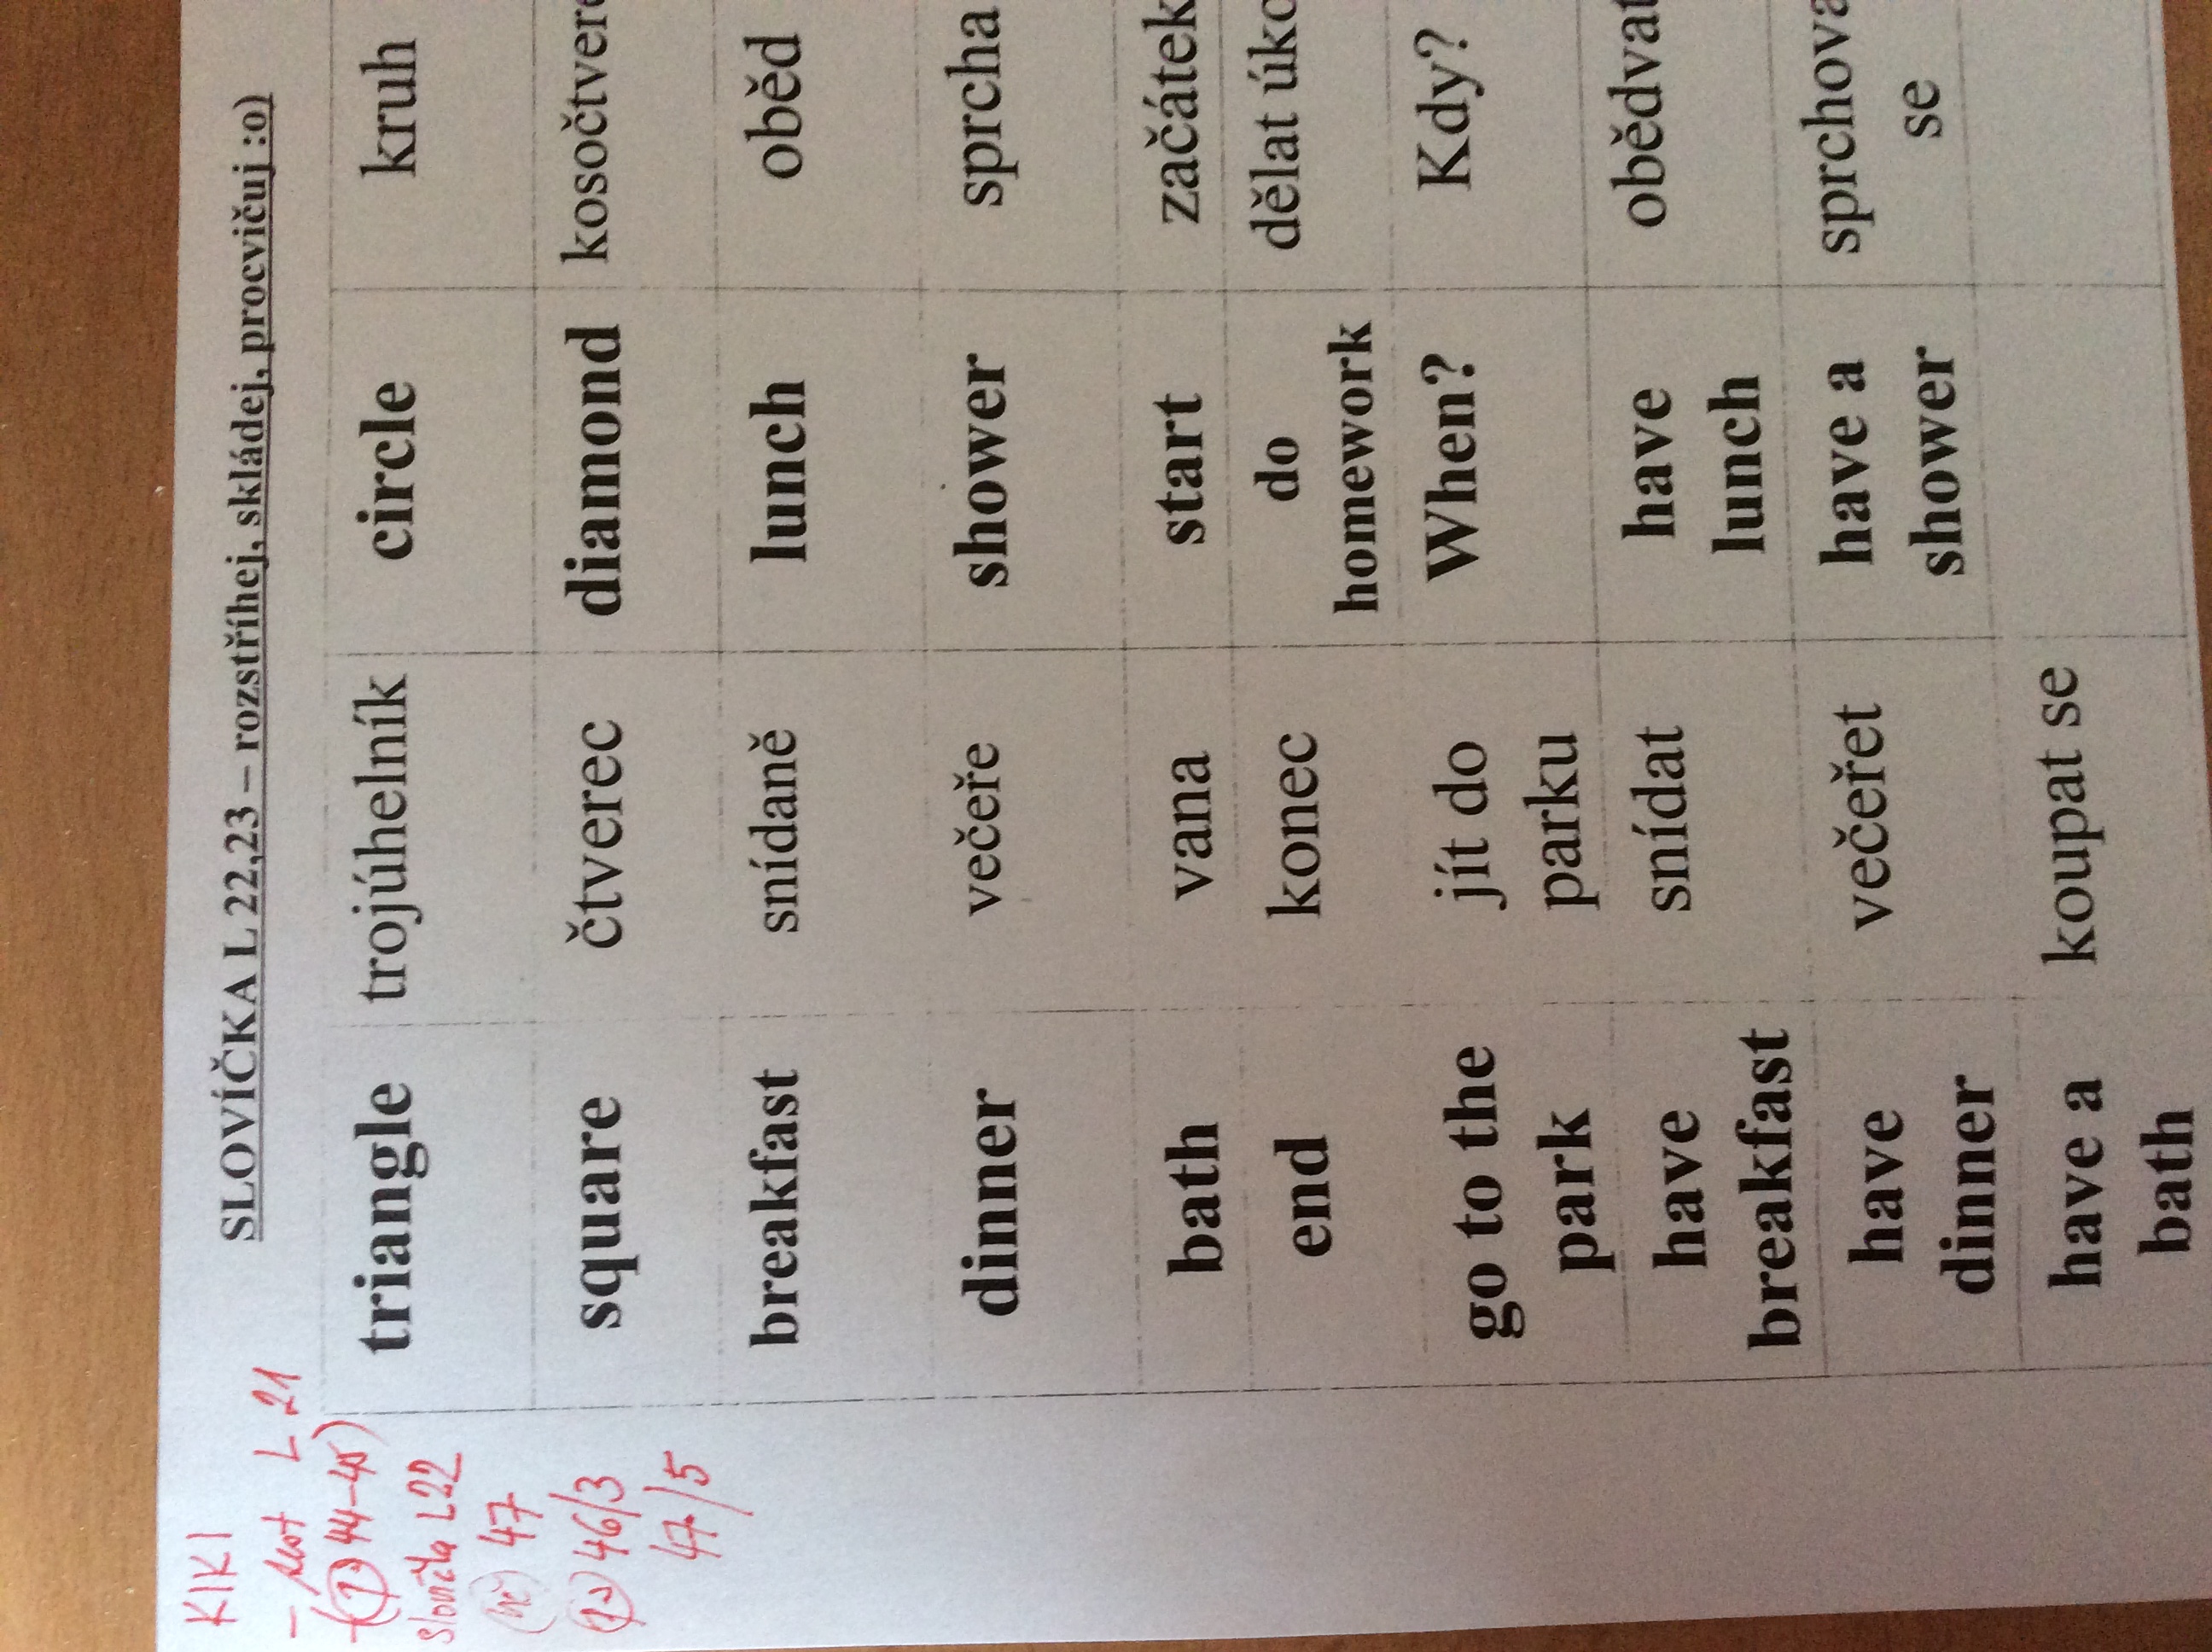 KIKI
- test L 21
44-45)
slovíčka L22
47
46/3
47/5
SLOVÍČKA L 22,23 – rozstříhej, skládej, procvičuj :o)
triangle trojúhelník circle kruh
square čtverec diamond kosočtvere
breakfast snídaně lunch oběd
dinner večeře shower sprcha
bath vana start začátek
end konec do dělat úko
homework
go to the jít do When? Kdy?
park parku
have snídat have obědvat
breakfast lunch
have večeřet have a sprchova
dinner shower se
have a koupat se
bath